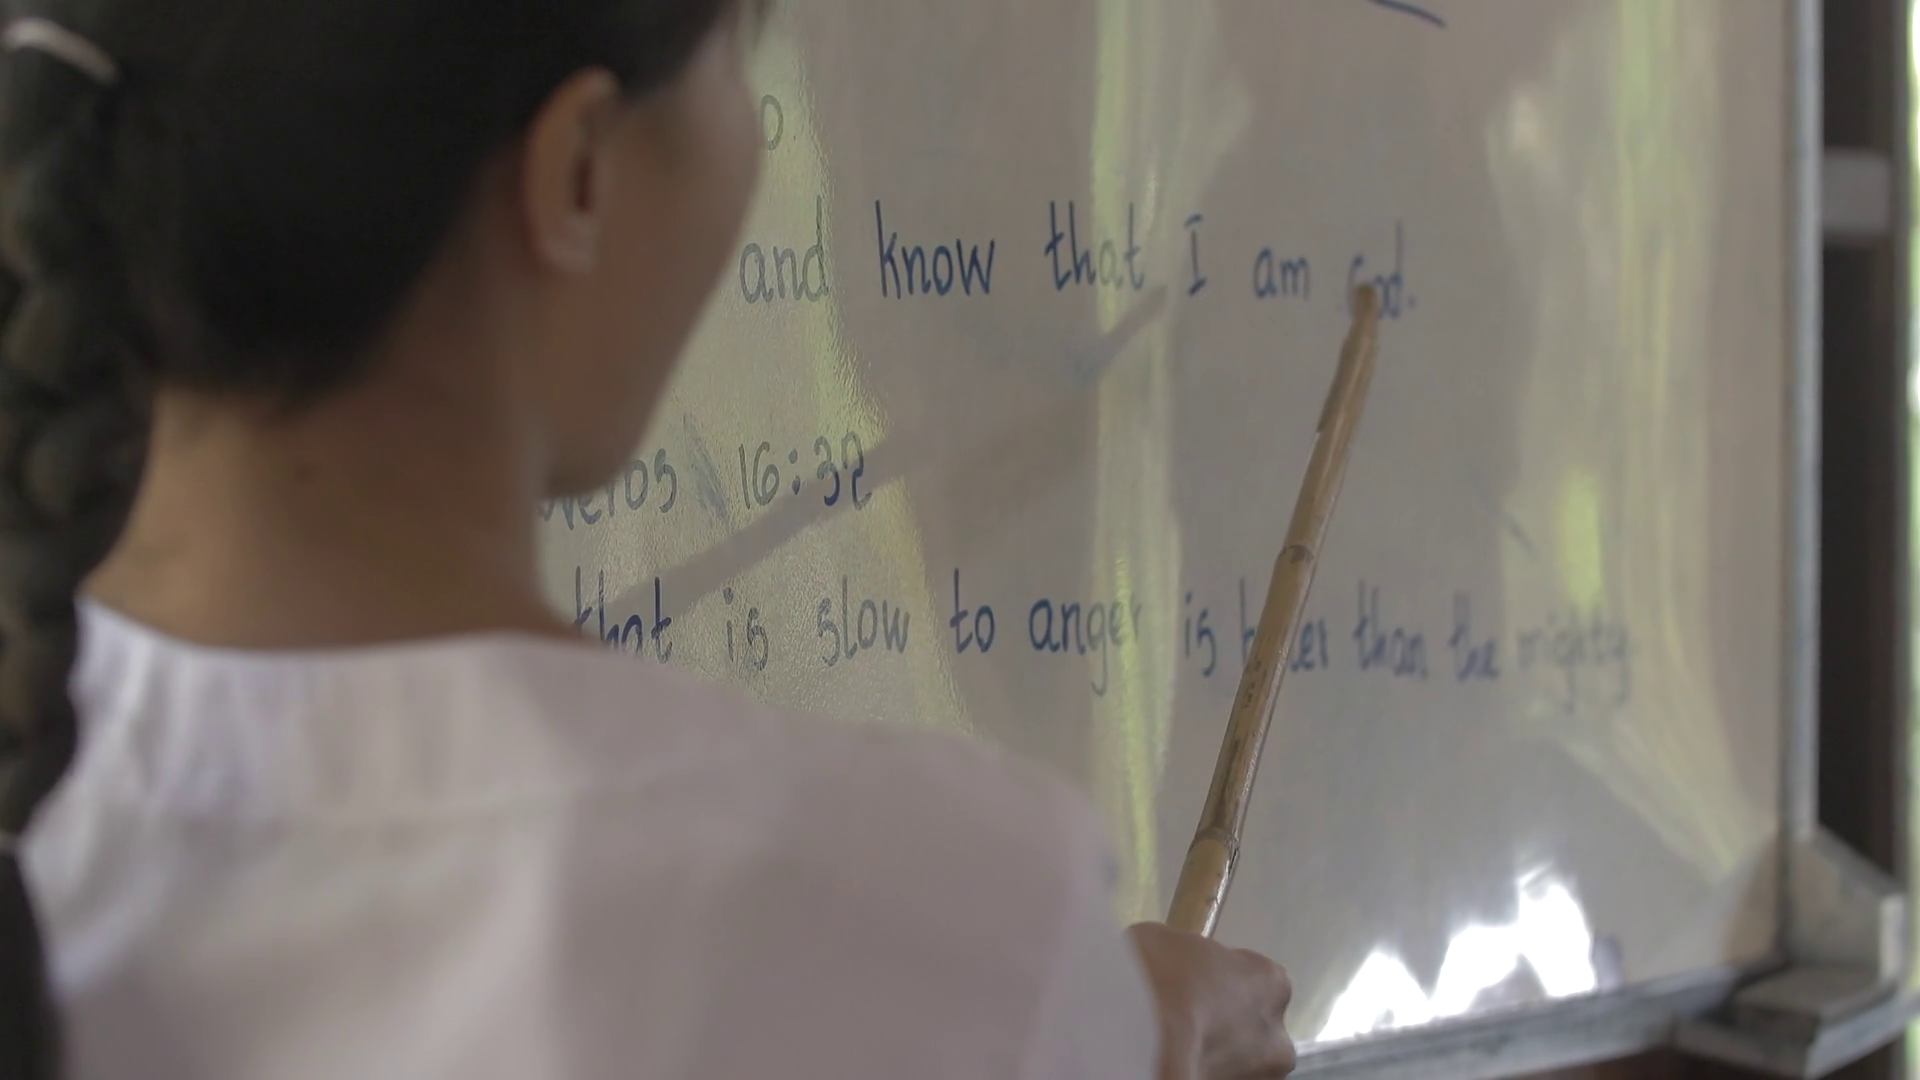 0
and know that I am God.
verbs 16:32
that is slow to anger is better than the mighty